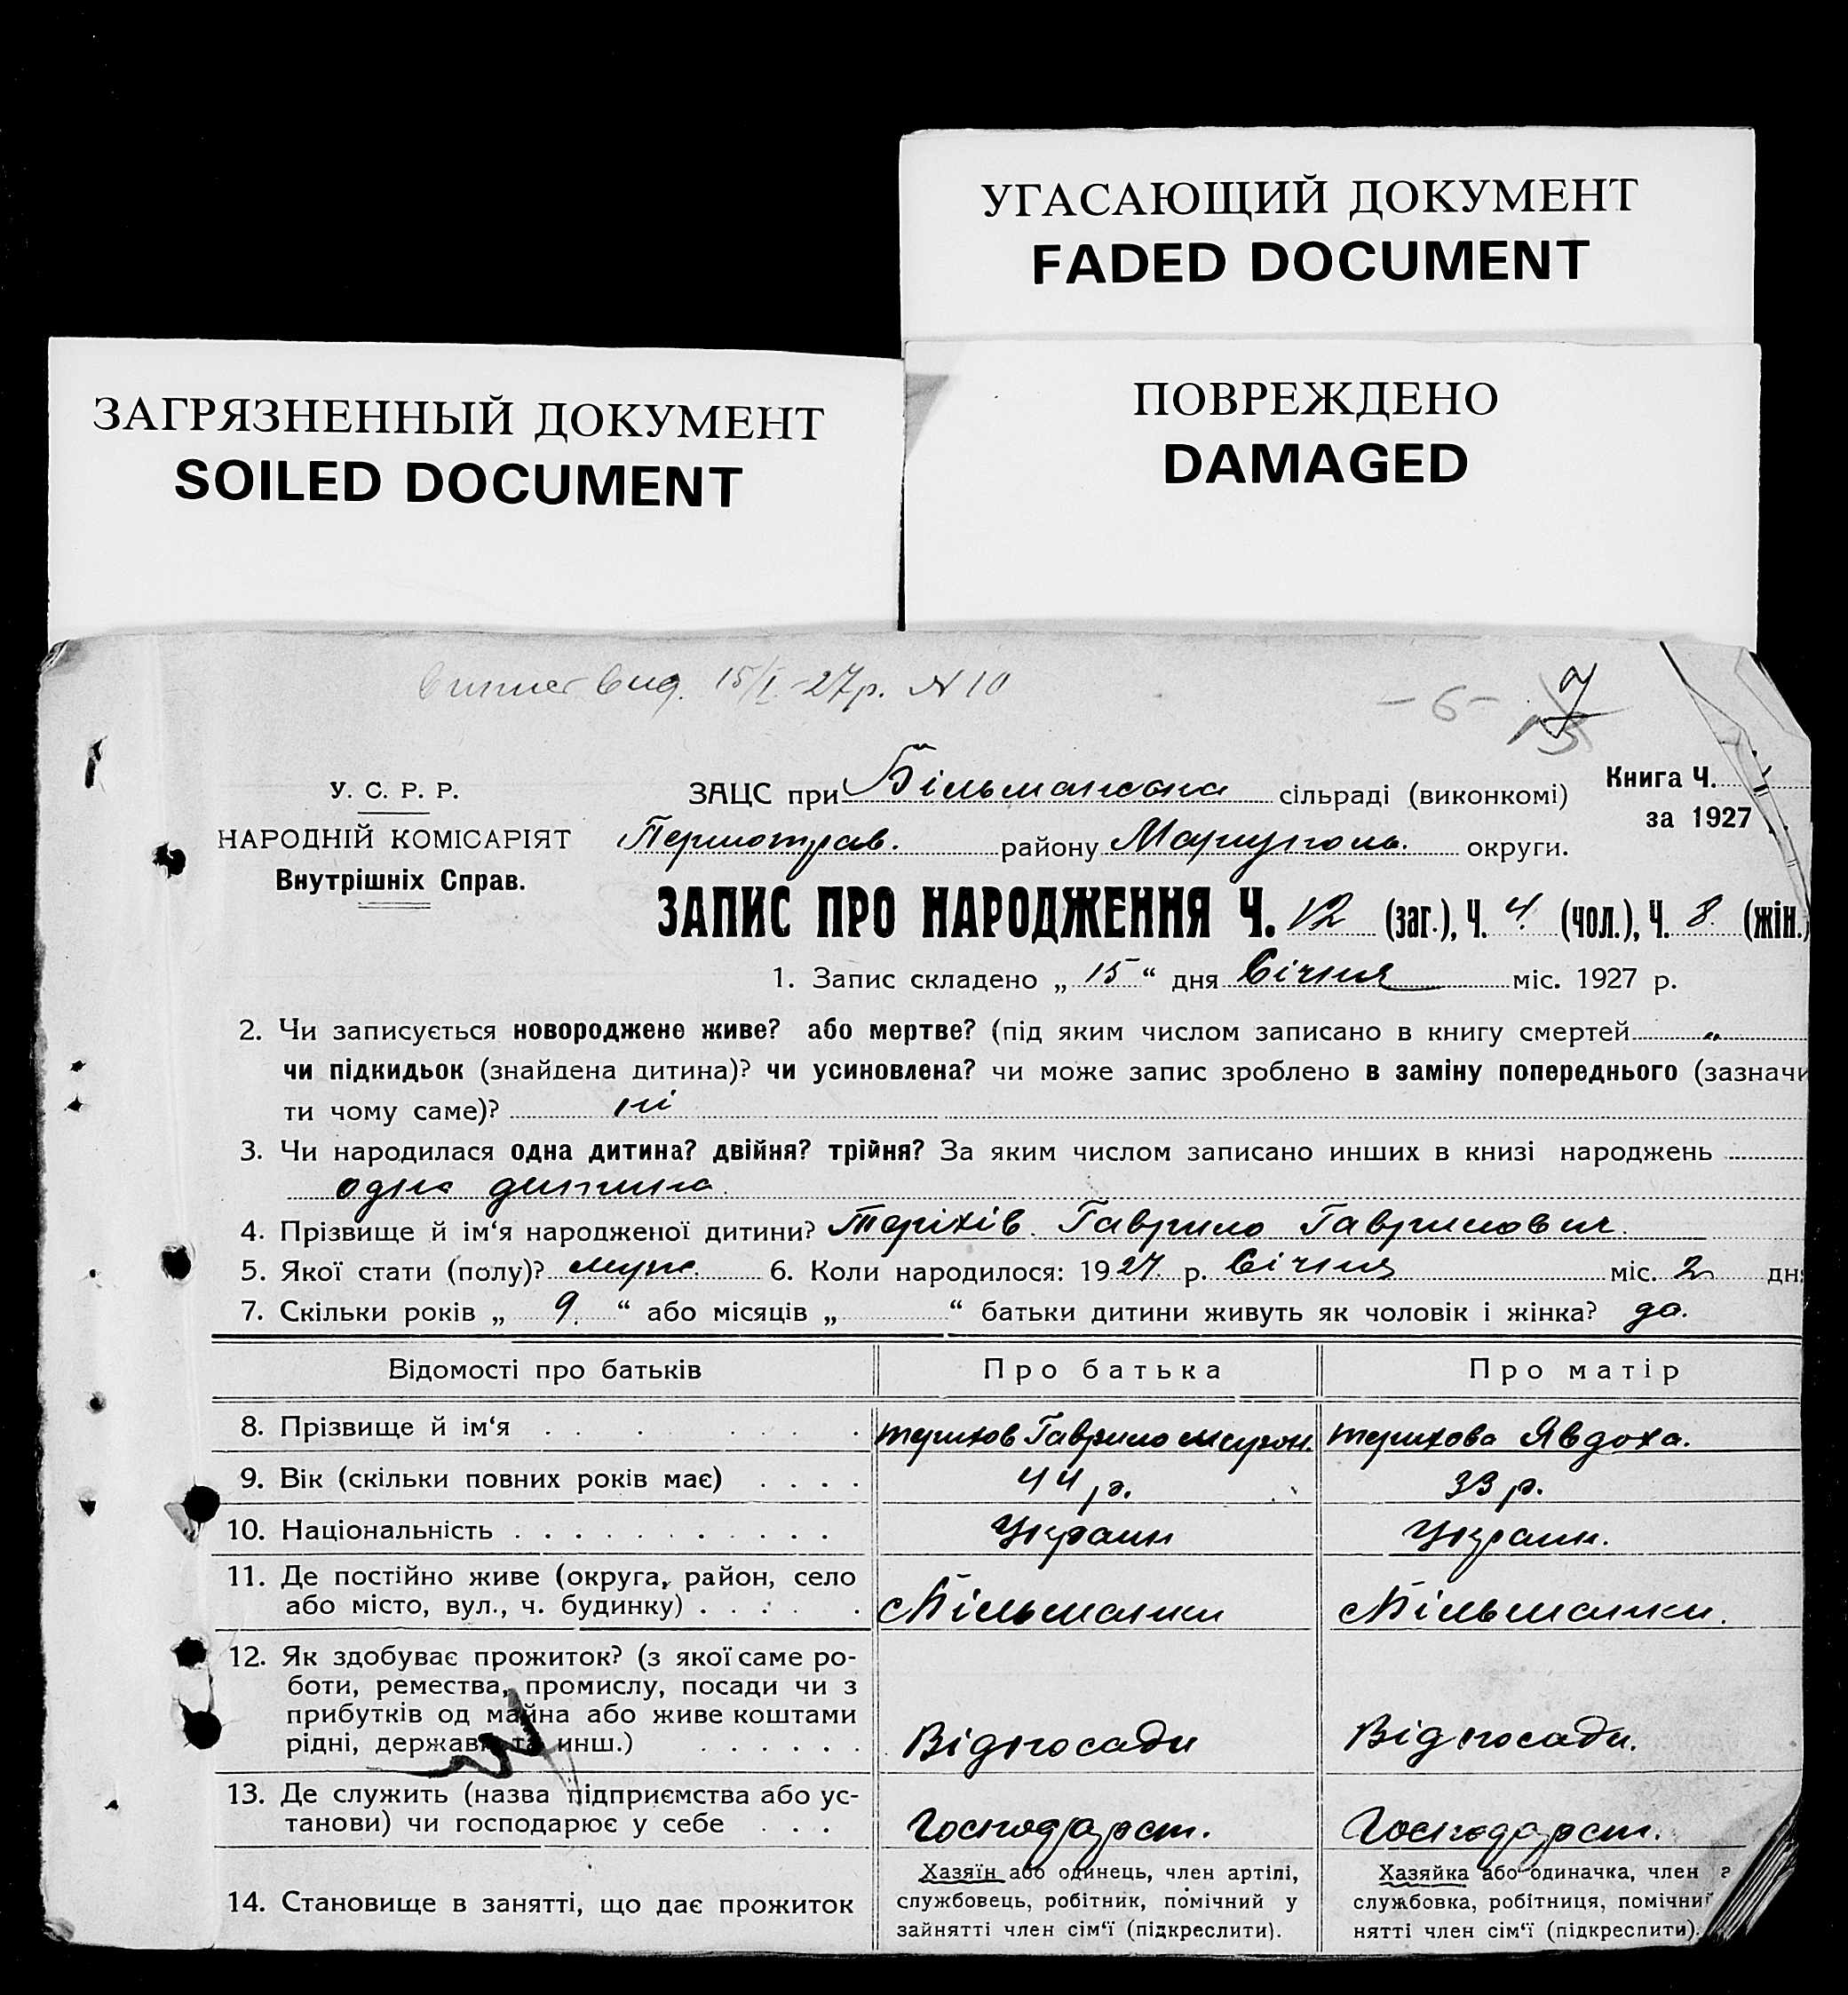 УГАСАЮЩИЙ ДОКУМЕНТ
FADED DOCUMENT
ЗАГРЯЗНЕННЫЙ ДОКУМЕНТ
SOILED DOCUMENT
ПОВРЕЖДЕНО
DAMAGED
15/I-27р. N 10
-6- 7
У. С. Р. Р.
НАРОДНІЙ КОМІСАРІЯТ
Внутрішніх Справ.
ЗАЦС при Більманська сільраді (виконкомі)
Книга Ч.
за 1927
району Маріуполь. округи.
ЗАПИС ПРО НАРОДЖЕННЯ Ч. 12 (заг.), Ч. 4 (чол.), Ч. 8 (жін.)
1. Запис складено „ 15 “ дня Січня міс. 1927 р.
2. Чи записується новороджене живе? або мертве? (під яким числом записано в книгу смертей „
чи підкидьок (знайдена дитина)? чи усиновлена? чи може запис зроблено в заміну попереднього (зазначи
ти чому саме)? ні
3. Чи народилася одна дитина? двійня? трійня? За яким числом записано инших в книзі народжень
одна дитина.
4. Прізвище й ім‘я народженої дитини? Теріхів Гаврило Гаврилович.
5. Якої стати (полу)? муж. 6. Коли народилося: 1927. р. Січня міс. 2 дня
7. Скільки років „ 9. “ або місяців „ “ батьки дитини живуть як чоловік і жінка? да.
Відомості про батьків Про батька Про матір
8. Прізвище й ім‘я Терихов Гаврило Терихова Явдоха.
9. Вік (скільки повних років має) 44 р. 33 р.
10. Національність Украин Украин.
11. Де постійно живе (округа, район, село
або місто, вул., ч. будинку) с Більманки с Більманки.
12. Як здобуває прожиток? (з якої саме ро-
боти, ремества, промислу, посади чи з
прибутків од майна або живе коштами
рідні, держави та инш.) Від посади Від посади.
13. Де служить (назва підприємства або ус-
танови) чи господарює у себе Господарст. Господарст.
14. Становище в занятті, що дає прожиток
Хазяїн або одинець, член артілі,
службовець, робітник, помічний у
зайнятті член сім‘ї (підкреслити).
Хазяйка або одиначка, член
службовка, робітниця, помічний
нятті член сім‘ї (підкреслити).